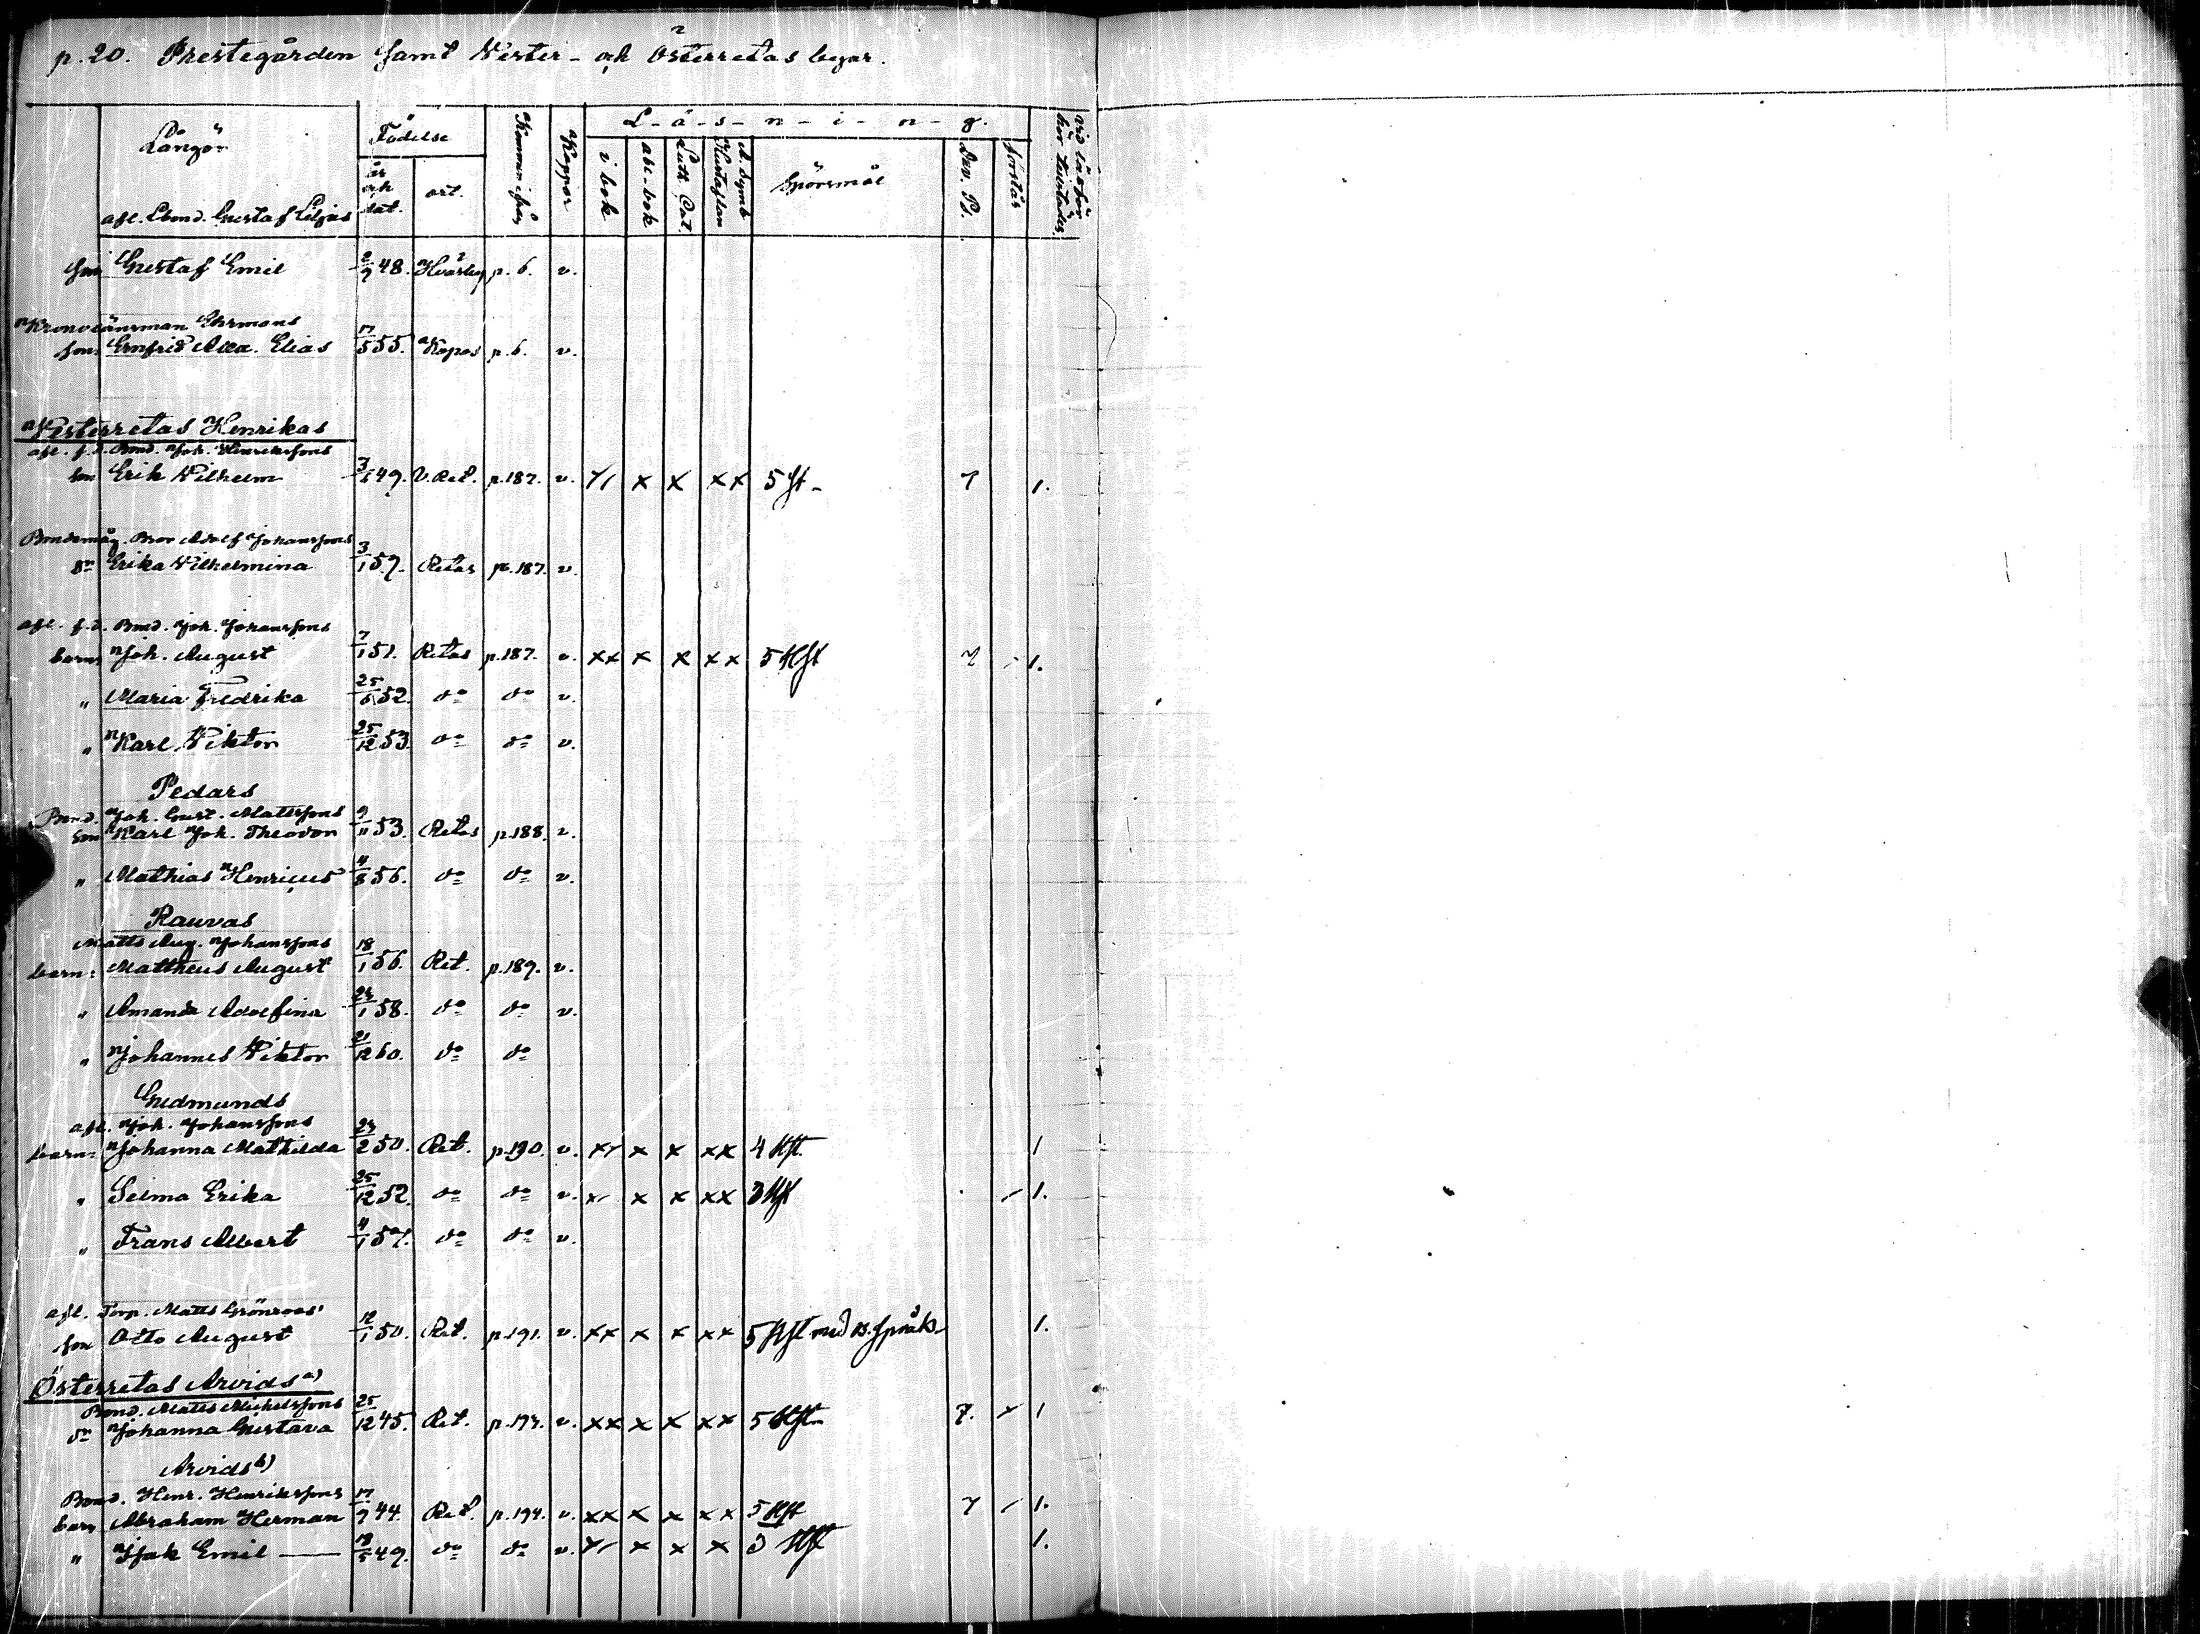 p. 20. Prestegården samt Vester- och Österretas byar.
Långör
afl. Lbond. Gustaf Liljas
Födelse
år och dat.
ort.
Koppor
L-ä-s-n-i-n-g.
i bok
abc-bok
Luth. Cat.
A. Symb. Hustaflan
Spörsmål
Dav. Ps.
förstår
son Gustaf Emil 2/9 48. p. 6. v.
Kronolänsman Ehrmans
son Ernfrid Alex. Elias 17/5 55. Kapas p. 6. v.
Vesterretas Henrikas
afl. f.d. Bond. Joh. Henrikssons
son Erik Wilhelm 3/6 49. V. Ret. p. 187. v. x x x x x 5 st- 7 1.
Bondemåg. Bror Adolf Johanssons
dr Erika Wilhelmina 3/1 57. Retas p. 187. v.
afl. f.d. Bond. Joh. Johanssons
barn: Joh. August 7/1 51. Retas p. 187. v. xx x x xx 5 Hft 7 1.
" Maria Fredrika 25/6 52. do do v.
" Karl Viktor 25/12 53. do do v.
Pedars
Bond. Joh. Gust. Mattssons
son Karl Joh. Theodor 9/11 53. Retas p. 188. v.
" Mathias Henricus 4/8 56. do do v.
Rauvas
Matts Aug. Johanssons
barn: Mattheus August 18/1 56. Ret. p. 189. v.
" Amanda Adolfina 23/1 58. do do v.
" Johannes Viktor 21/12 60. do do
Gudmunds
afl. Joh. Johanssons
barn: Johanna Mathilda 23/2 50. Ret. p. 190. v. xx x x xx 4 Hft. 1
" Selma Erika 25/12 52. do do v. x x x xx 3 Hft 1.
" Frans Albert 4/1 57. do do v.
afl. Torp. Matts Grönroos'
son Otto August 12/1 50. Ret. p. 191. v. xx x x xx 5 Hft med B. språk- 1.
Österretas Arvids a)
Bond. Matts Michelssons
dr Johanna Gustava 25/12 45. Ret. p. 193. v. xx x x xx 5 Hft 7. x 1
Arvids b)
Bond. Henr. Henrikssons
barn Abraham Herman 17/9 44. Ret. p. 194. v. xx x x xx 5 Hft 7 1.
" Isak Emil — 18/5 49. do do v. x x x x 3 Hft 1.